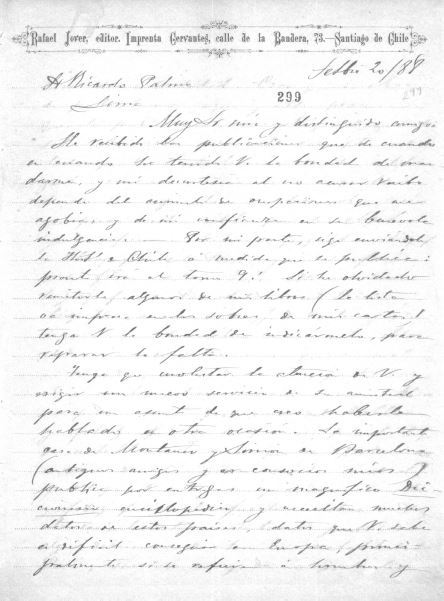 Rafael Jover, editor. Imprenta Cervantes, calle de la Bandera, 73.—Santiago de Chile
Setbre 20/88
Dr Ricardo Palma
Lima
299
Muy Sr mio y distinguido amigo
He recibido las publicaciones que de cuando
en cuando ha tenido V. la bondad de man
darme, y mi descortesia al no acusar recibo
depende del cumulo de ocupaciones que me
agobian y de mi confianza en su benévola
indulgencia. Por mi parte, sigo enviándole
la Hist. de Chile a medida que se publica:
pronto irá el tomo 9º. Si he olvidado
remitirle alguno de mis libros (la lista
va impresa en los sobres de mis cartas)
tenga V. la bondad de indicármelo, para
reparar la falta.
Tengo que molestar la atencion de V. y
exigir un nuevo servicio de su amistad
para un asunto de que creo haberle
hablado en otra ocasion. La importante
casa de Montaner y Simon de Barcelona
(antiguos amigos y consocios mios)
publica por entregas un magnifico Dic
cionario enciclopédico y necesitan muchos
datos de estos paises, datos que V. sabe
es dificil conseguir en Europa, princi-
palmente si se refieren á hombres y